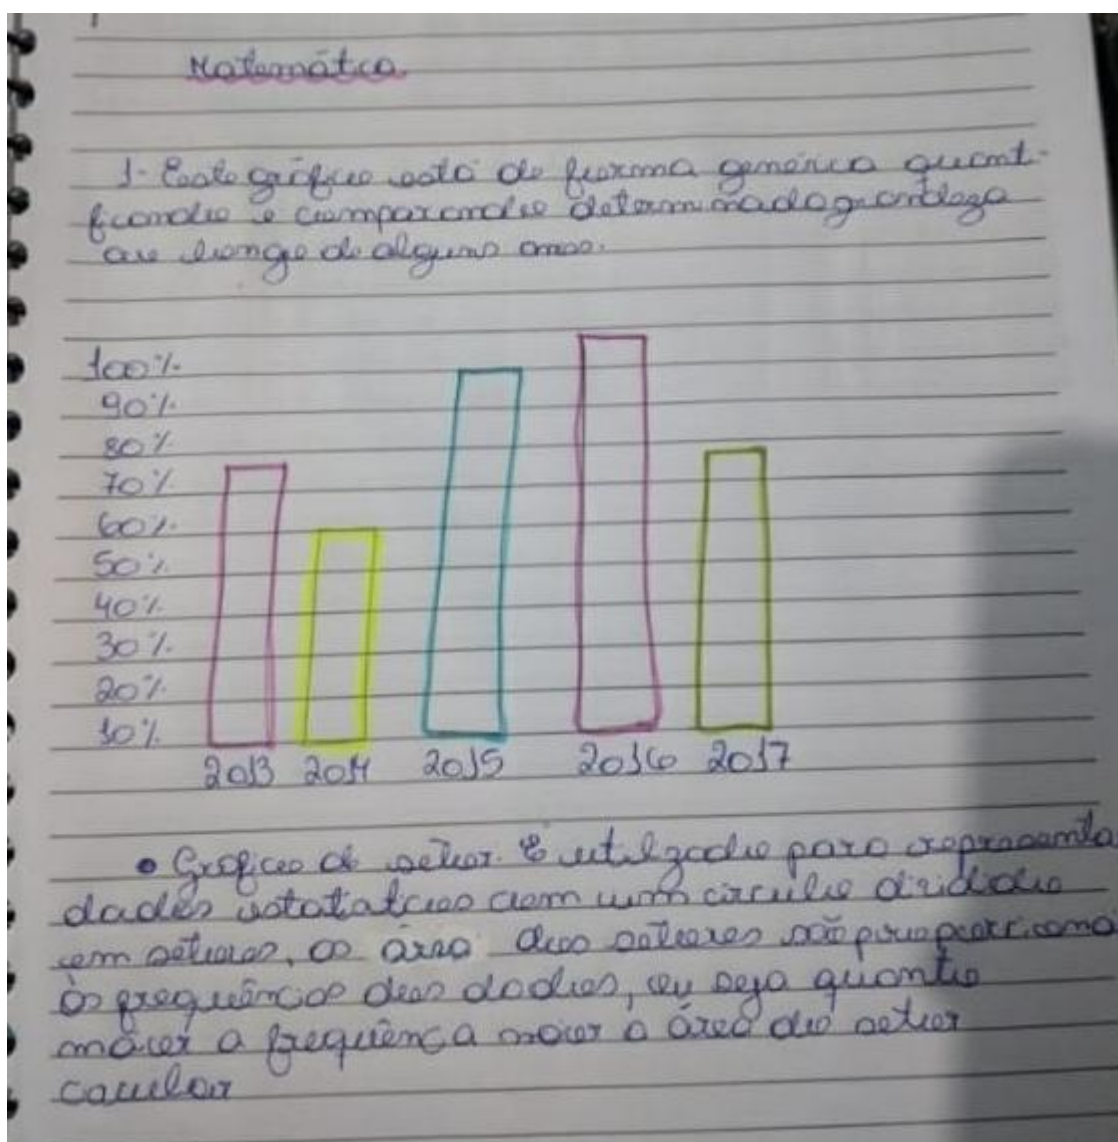 Matemática
1- Este gráfico está de forma genérica quanti-
ficando e comparando determinada grandeza
ao longo de alguns anos.
100%
90%
80%
70%
60%
50%
40%
30%
20%
10%
2013 2014 2015 2016 2017
• Gráfico de setor. É utilizado para representa
dados estatatcos com um circulo dividido
em setores, as área dos setores são proporciona
às frequências dos dados, ou seja quanto
maior a frequênca maior a área do setor